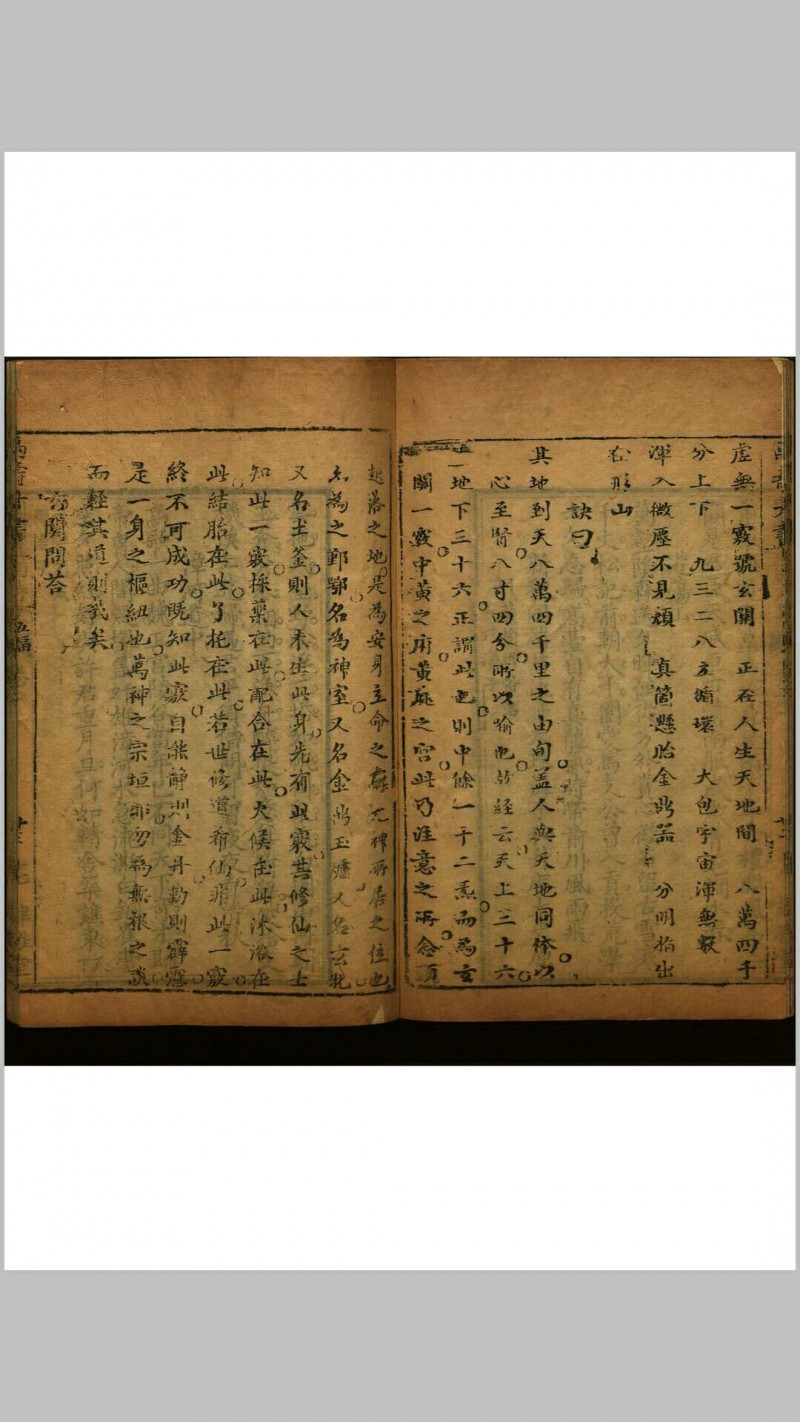 虛無一竅號玄關 正在人生天地間 八萬四千
分上下 九三二八立循環 大包宇宙渾無竅
渾入微塵不見顏 真箇懸胎金鼎器 分明指出
在形山
訣曰
其地到天八萬四千里之由旬蓋人與天地同体以
心至腎八寸四分所以喻也
經云天上三十六
地下三十六正謂此也則中餘一千二炁而為玄
關一竅中黃之府黃庭之宮此乃注意之所念頭
起落之地是為安身立命之
所居之位也
名為之鄞鄂名為神室又名金鼎玉爐又名玄牝
又名土釜則人未生此身先有此竅其修仙之士
知此一竅採藥在此配合在此火候在此沐浴在
此結胎在此了托在此若世修道希仙非此一竅
終不可成功既知此竅自能靜則金丹動則霹靂
是一身之樞紐也萬神之宗垣耶勿為無根之談
而輕其道則幾矣
玄關問荅